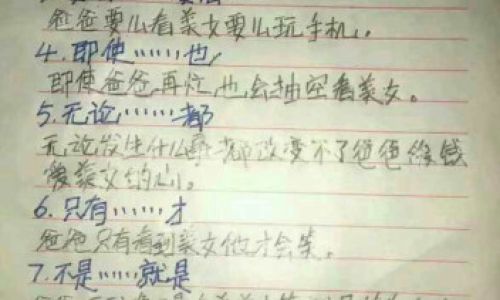 爸爸要么看美女要么玩手机。
4.即使……也
即使爸爸再忙,也会抽空看美女。
5.无论……都
无论发生什么事都改变不了爸爸
爱美女的心。
6.只有……才
爸爸只有看到美女他才会笑。
7.不是……就是